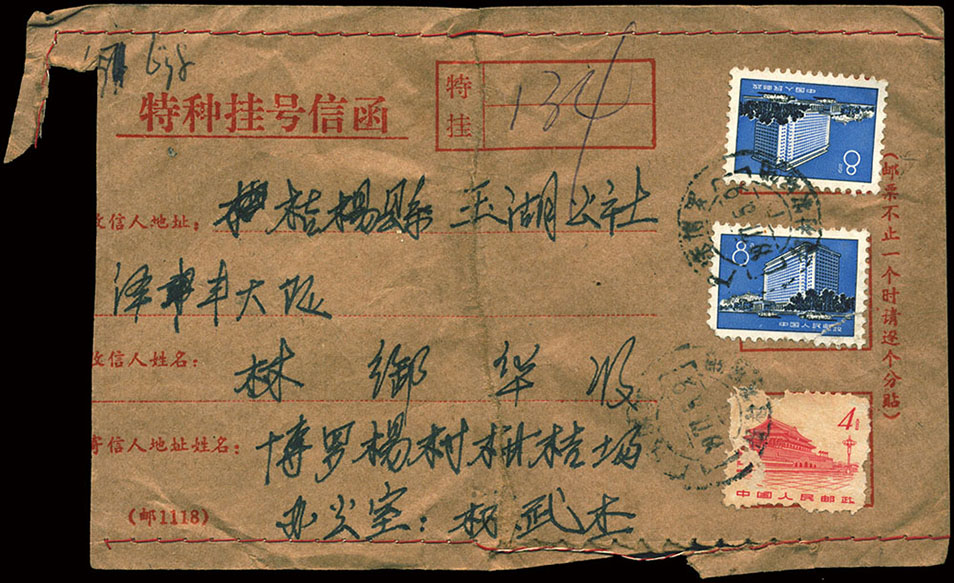 特种挂号信函
特挂
134
收信人地址：揭楊縣玉湖公社
大队
收信人姓名：林御华收
寄信人地址姓名：博罗楊村柑桔场
办公室：杨武杰
(邮1118)
(邮票不止一个时请逐个分贴)
8分
中国人民邮政
8分
中国人民邮政
4分
中国人民邮政